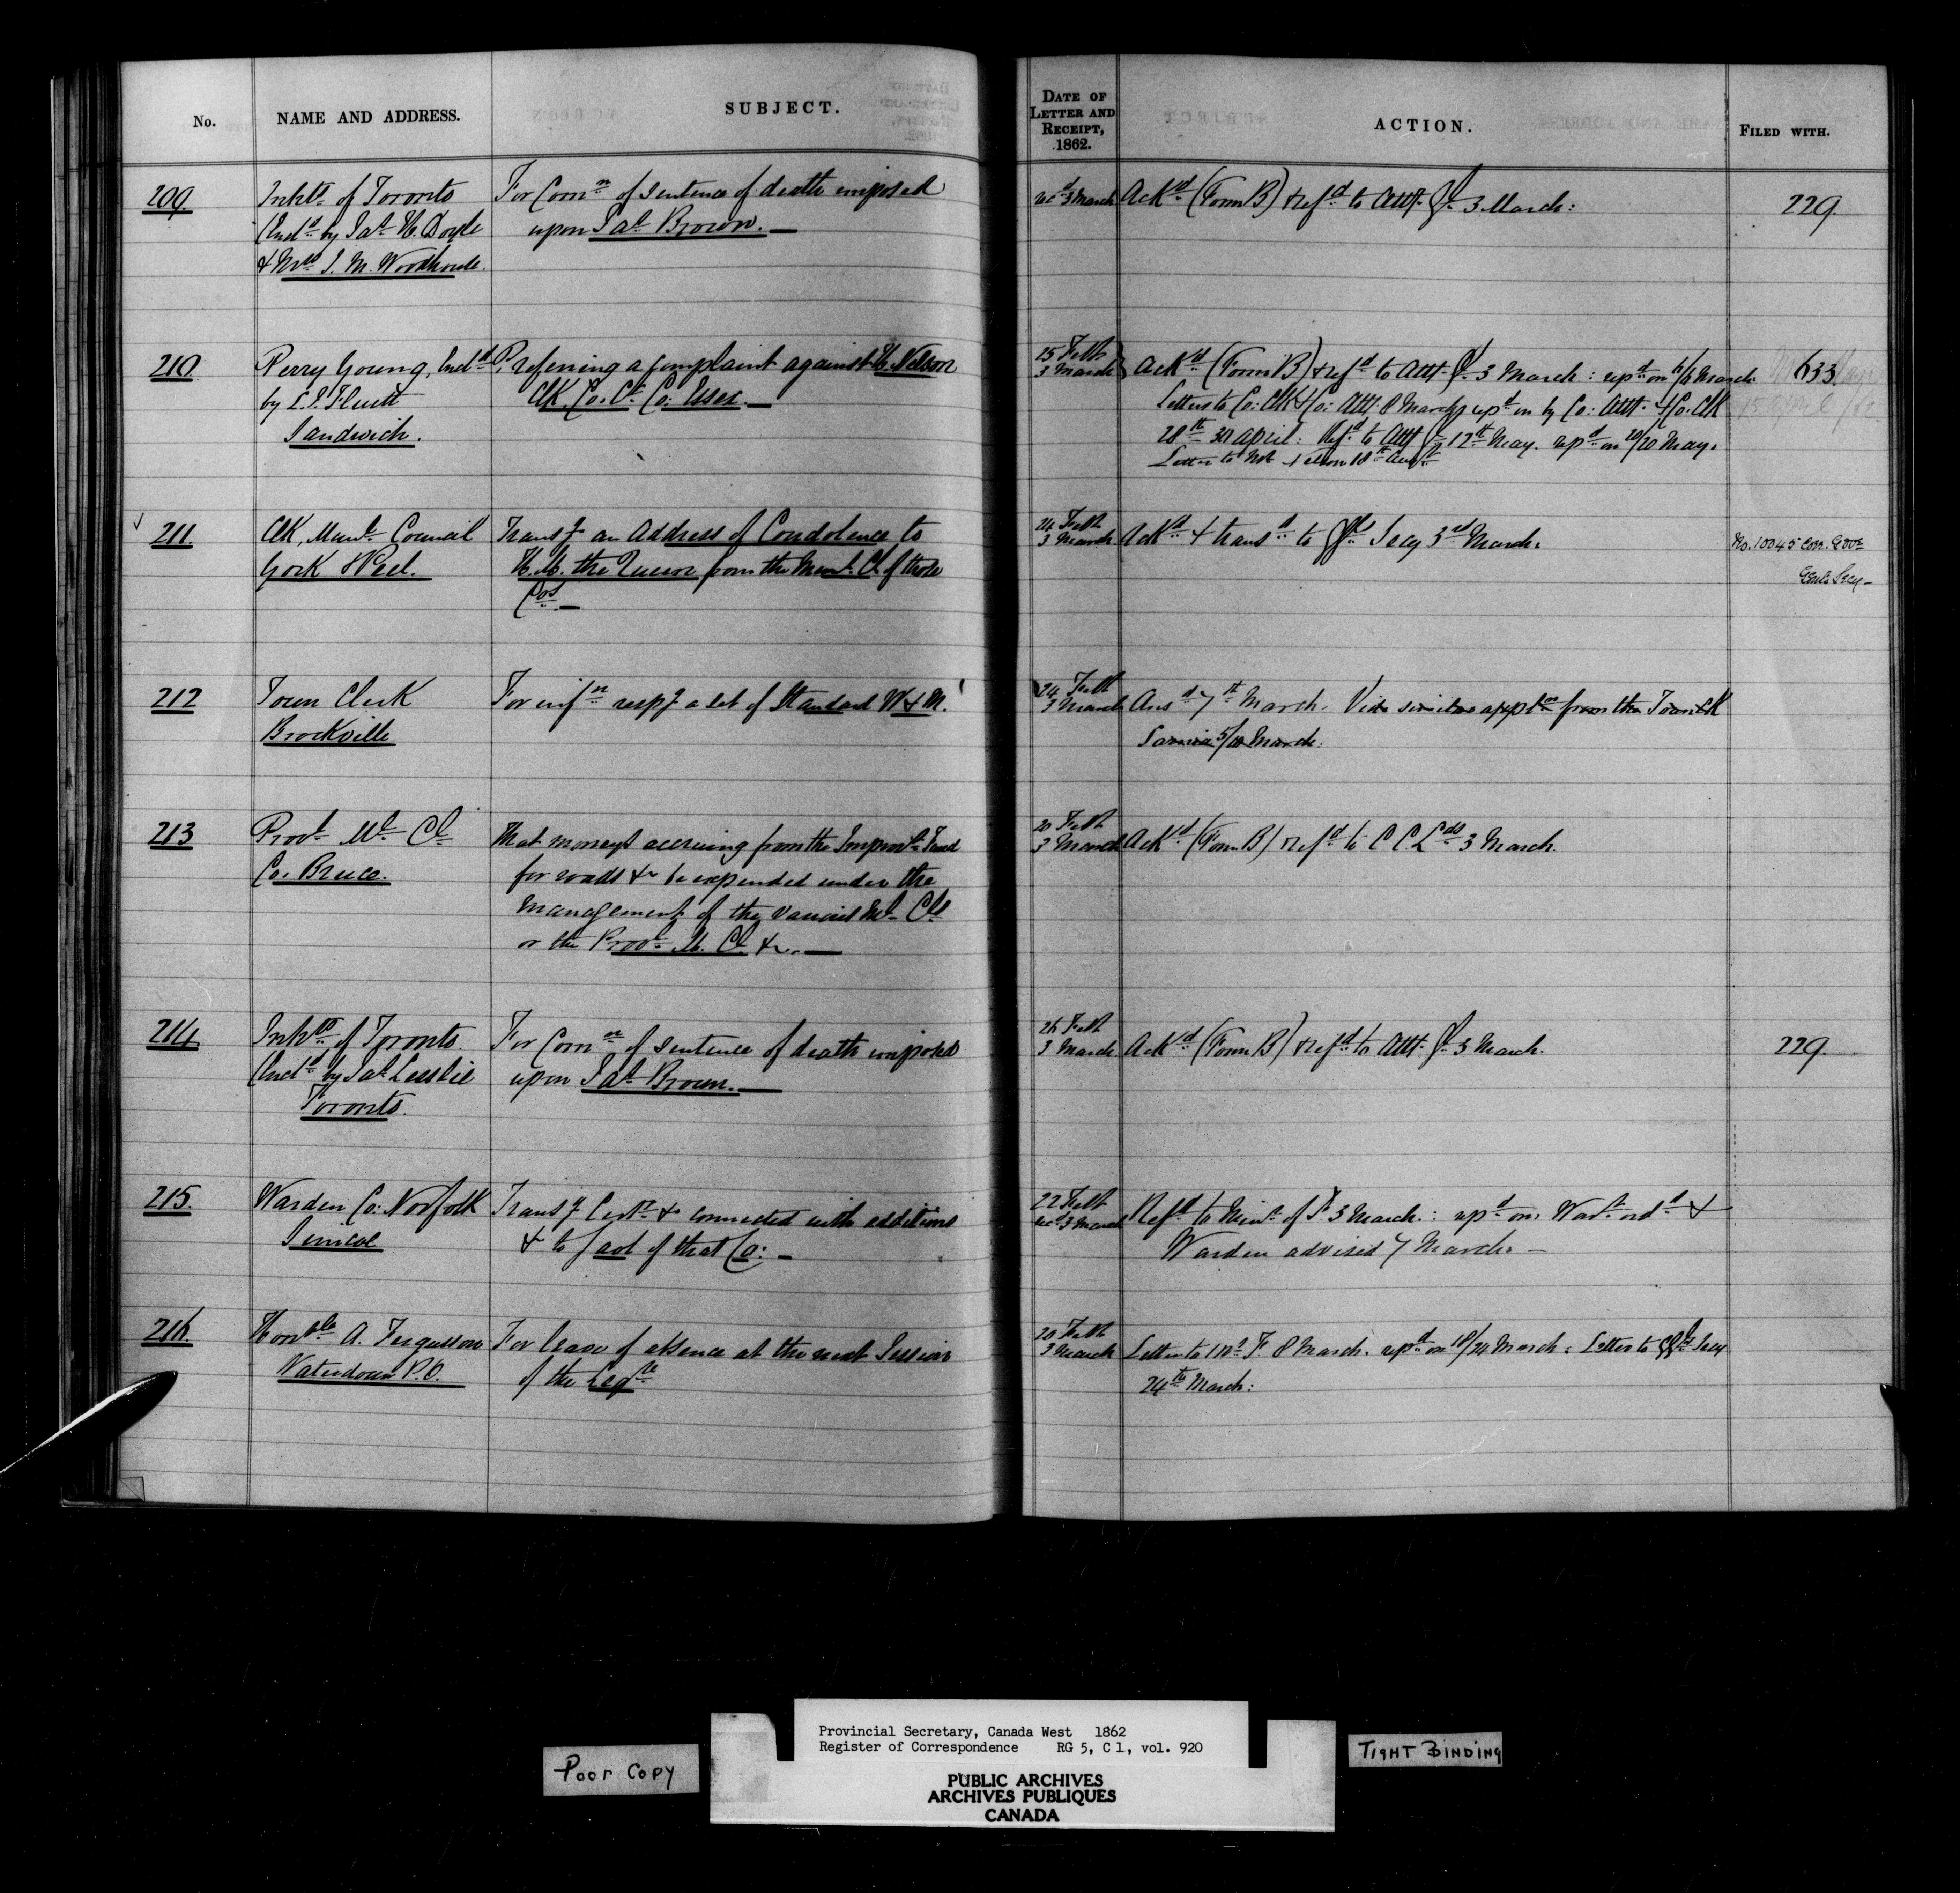 No.
NAME AND ADDRESS.
SUBJECT.
DATE OF
LETTER AND
RECEIPT,
1862.
ACTION.
FILED WITH.
209
Inhts. of Toronto
(Incld. by Jas. H. Doyle
& Mrs. J. M. Woodhouse.
For Comn. of sentence of death imposed
upon Jas. Brown. —
recd 3 March
Ackd. (Form B) & refd. to Atty. Gl. 3 March:
229.
210
Perry Young, Incld.
by
Sandwich.
P, referring a complaint against H. Nelson
Clk. Co. Ct. Co. Essex. —
25 Feb
3 March
Ackd. (Form B) & refd. to Atty. Gl. 3 March: repd. on 6/6 March
Letters to Co: Clk & Co: Atty. 8 March; repd. on by Co: Atty. & Co. Clk
28th 30 April: Refd. to Atty Gl. 12th May. repd. on 20/20 May.
Letter to Nelson 18th Augt.
633
211
Clk, Munl. Council
York & Peel.
Transg. an Address of Condolence to
H. M. the Queen from the Munl. Cl. of those
Cos. —
24 Feb
3 March
Ackd. & transd. to Gl. Secy 3rd March.
No. 10045 Corr. Govr.
Genls Secy —
212
Town Clerk
Brockville
For infn. respg a set of Standard W & M.
24 Feb
3 March
Ansd. 7th March. Vide similar appln from the Town Clk
Sarnia 5/10 March:
213
Provl. Ml. Cl.
Co. Bruce.
That moneys accruing from the Improvt. Fund
for roads &c be expended under the
management of the various Ml. Cls
or the Provl. M. Cl. &c. —
20 Feb
3 March
Ackd. (Form B) & refd. to C C. Lds. 3 March.
214
Inhts. of Toronto.
(Incld. by Jas. Lesslie
Toronto.
For Comn. of sentence of death imposed
upon Jas. Brown. —
26 Feb
3 March
Ackd. (Form B) & refd. to Atty. Gl. 3 March.
229.
215.
Warden Co: Norfolk
Simcoe
Transg Certe. &c connected with additions
& to Gaol of that Co: —
22 Feb
recd 3 March
Refd. to Minr. of F. 3 March.: repd. on. Wart. ordd. &
Warden advised 7 March. —
216.
Honble. A. Fergusson
Waterdown P.O.
For leave of absence at the next Session
of the Legre
20 Feb
3 March
Letter to Mr. F. 8 March. repd. on 18/24 March: Letter to Gl. Secy
24th March:
Poor Copy
Provincial Secretary, Canada West 1862
Register of Correspondence RG 5, C 1, vol. 920
PUBLIC ARCHIVES
ARCHIVES PUBLIQUES
CANADA
TIGHT BINDING